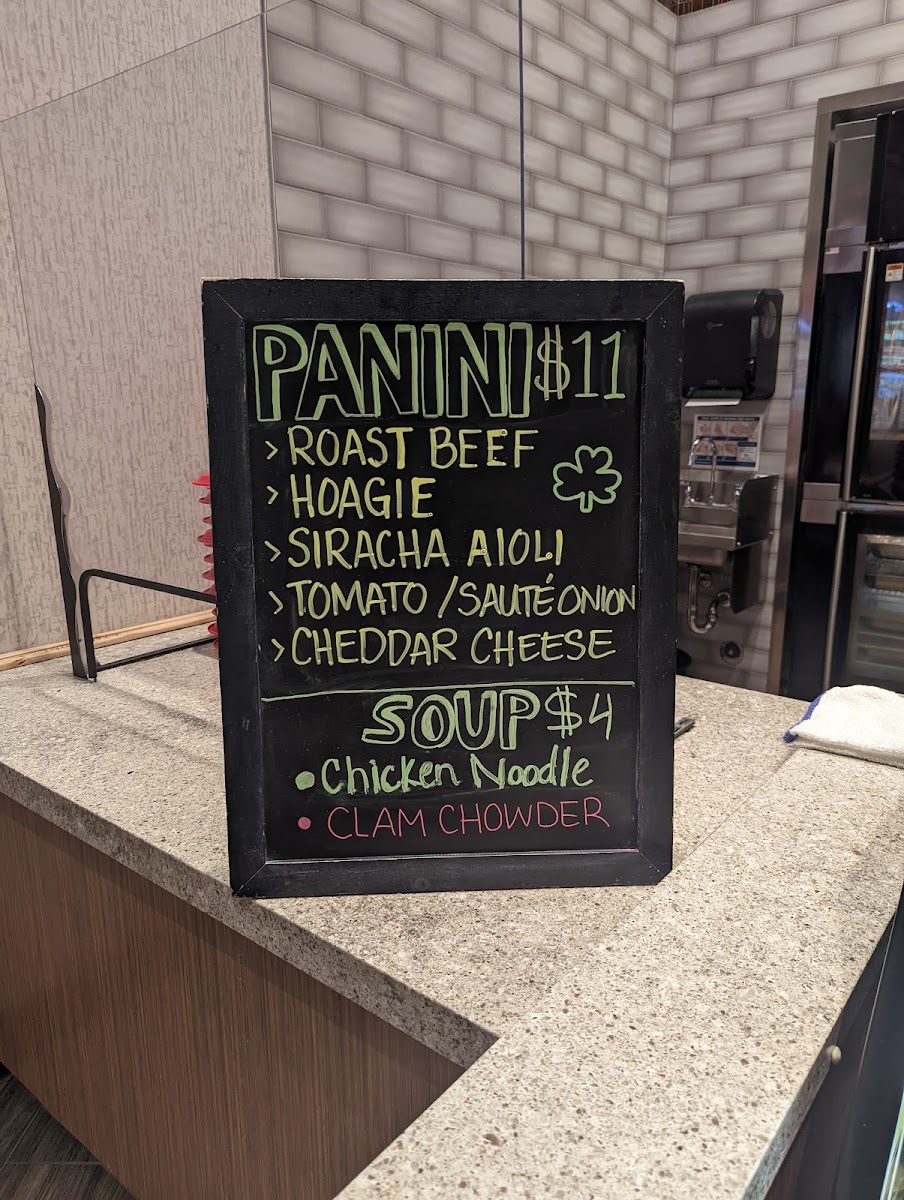 PANINI $11
> ROAST BEEF
> HOAGIE
> SIRACHA AIOLI
> TOMATO / SAUTÉ ONION
> CHEDDAR CHEESE
SOUP $4
• Chicken Noodle
• CLAM CHOWDER